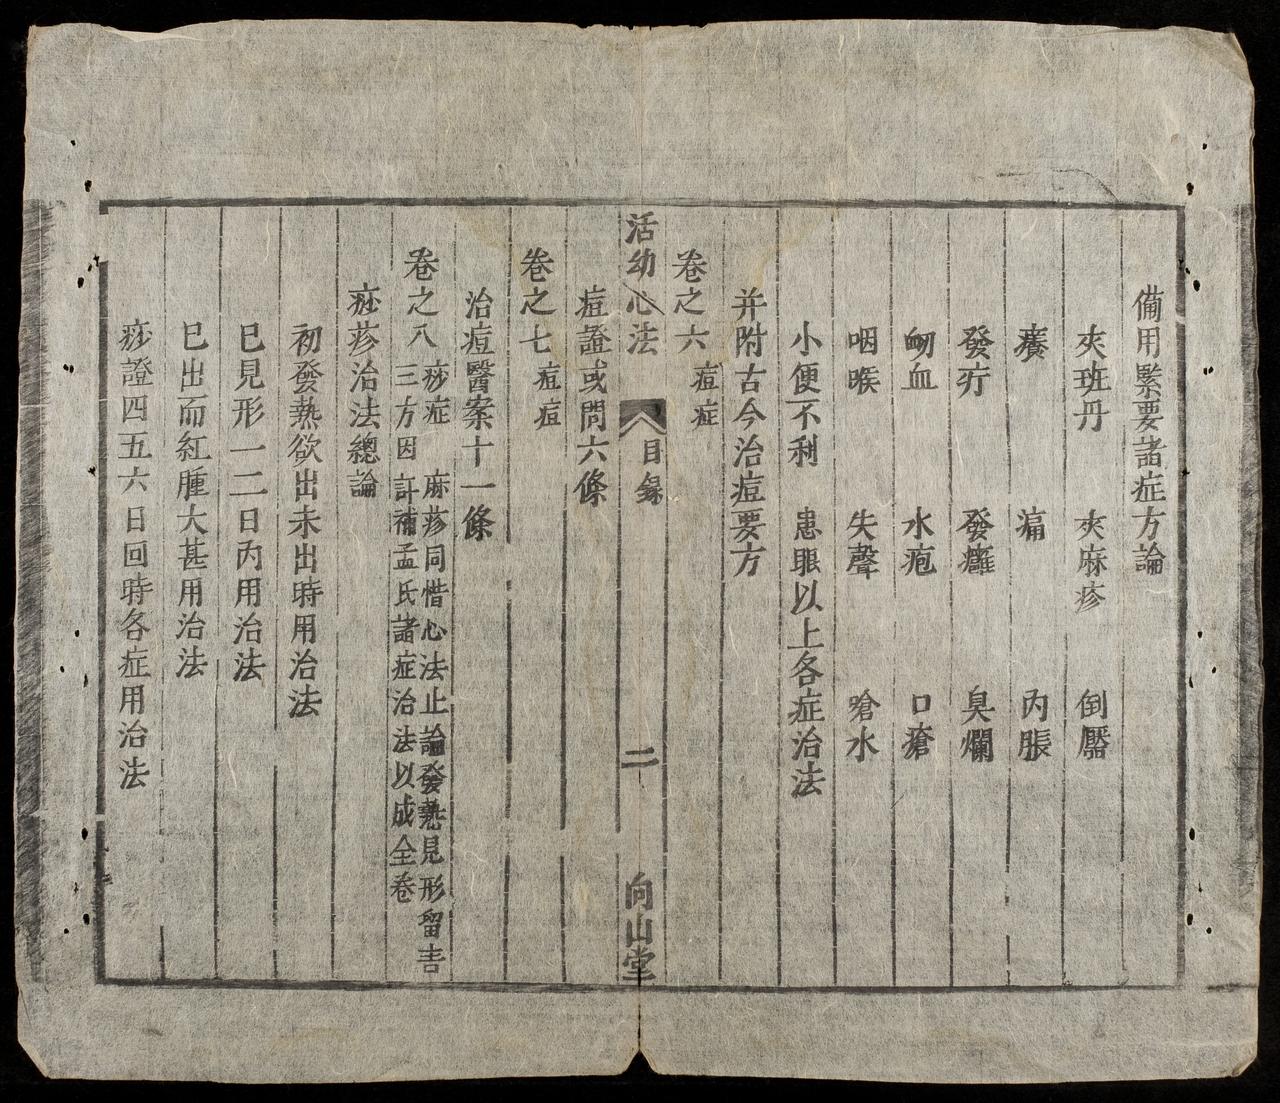 備用緊要諸症方論
夾班丹 夾麻疹 倒靨
癢 痛 內脹
發疔 發癰 臭爛
衂血 水疱 口瘡
咽喉 失聲 嗆水
小便不利 患眼以上各症治法
并附古今治痘要方
卷之六 痘症
活幼心法 目錄 二 向山堂
痘證或問六條
卷之七 痘痘
治痘醫案十一條
卷之八 痧症 麻疹同惜心法止論發熱見形留言
三方因 訐補孟氏諸症治法以成全卷
痧疹治法總論
初發熱欲出未出時用治法
巳見形一二日內用治法
巳出而紅腫大甚用治法
痧證四五六日回時各症用治法